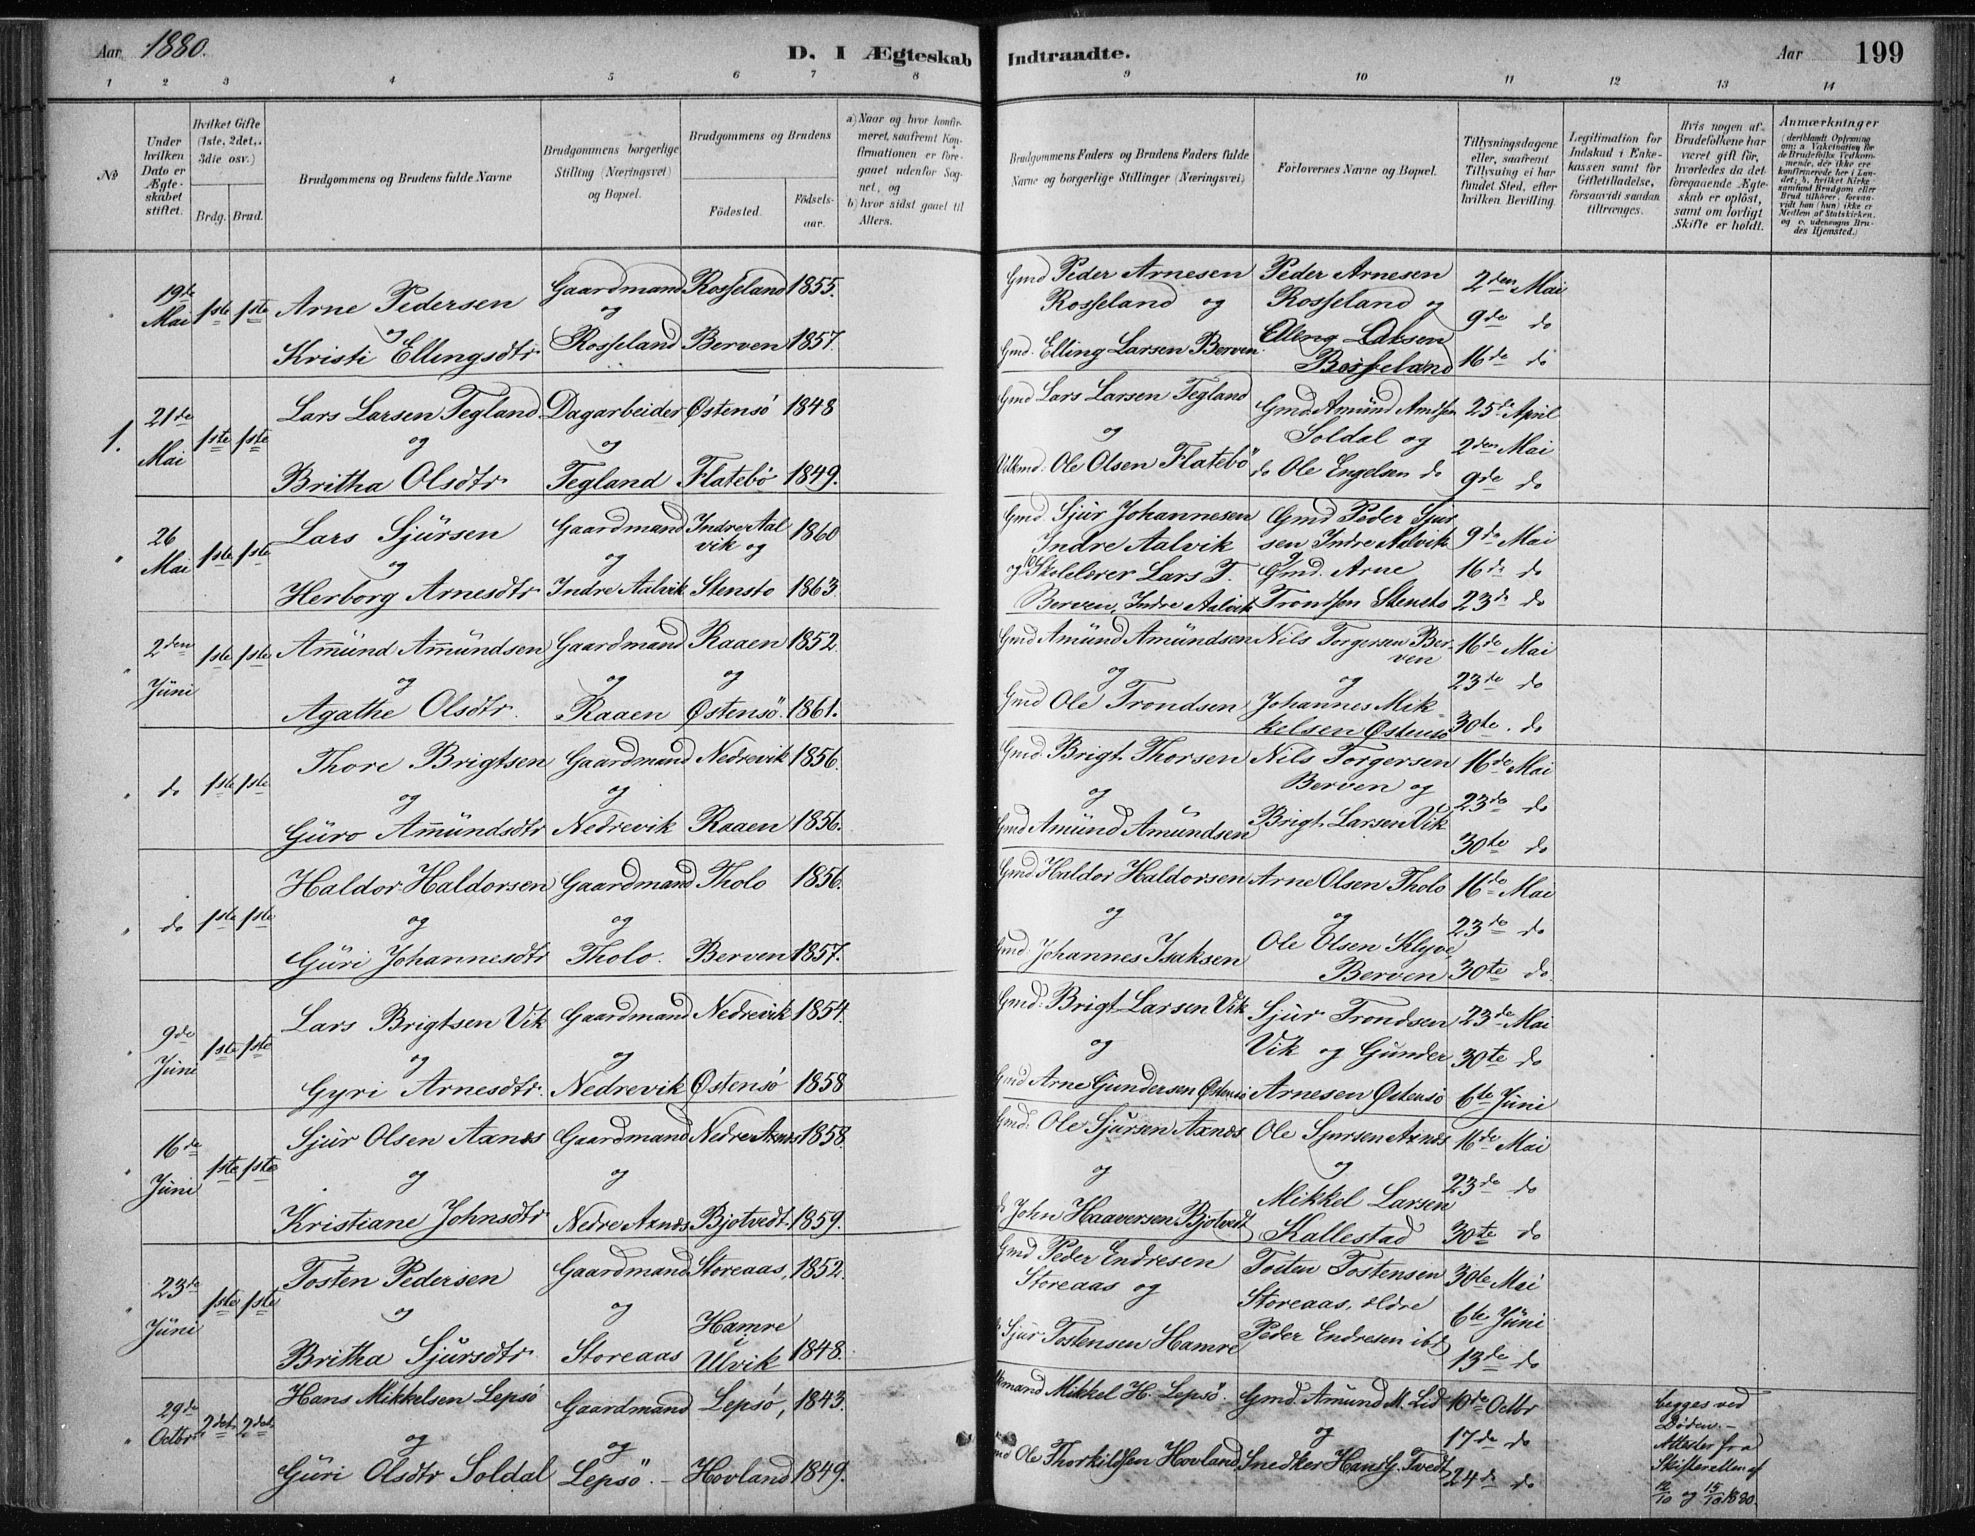 Aar 1880.
D. I Ægteskab Indtraadte.
Aar 199
1 2 3 4 5 6 7 8 9 10 11 12 13 14
No
Under hvilken Dato er Ægteskabet stiftet.
Hvilket Gifte (1ste, 2det, 3die osv.)
Brdg. Brud.
Brudgommens og Brudens fulde Navne
Brudgommens borgerlige Stilling (Næringsvei) og Bopæl.
Brudgommens og Brudens
Födested.
Födselsaar.
a) Naar og hvor konfirmeret, saafremt Konfirmationen er foregaaet udenfor Sognet, og
b) hvor sidst gaaet til Alters.
Brudgommens Faders og Brudens Faders fulde Navne og borgerlige Stillinger (Næringsvei)
Forlovernes Navne og Bopæl.
Tillysningsdagene eller, saafremt Tillysning ei har fundet Sted, efter hvilken Bevilling.
Legitimation for Indskud i Enkekassen samt for Giftetilladelse, forsaavidt saadan tiltrænges.
Hvis nogen af Brudefolkene har været gift för, hvorledes da det foregaaende Ægteskab er oplöst, samt om lovligt Skifte er holdt.
Anmærkninger
19de Mai 1ste 1ste Arne Pedersen Gaardmand Rosseland 1855. Gmd Peder Arnesen Peder Arnesen 2den Mai
og og Rosseland og Rosseland og 9de do
Kristi Ellingsdtr Rosseland Berven 1857. Gmd. Elling Larsen Berven. Elleng Laksen Rosseland 16de do
1. 21de Mai 1ste 1ste Lars Larsen Tegland Dagarbeider Østensö 1848 Gmd Lars Larsen Tegland Gmd. Amünd Amdsen 25de April
og og og Soldal og 2den Mai
Britha Olsdtr Tegland Flatebö 1849. Ole Olsen Flatebö do Ole Engelsen do 9de do
26 Mai 1ste 1ste Lars Sjürsen Gaardmand Indre Aalvik og 1860 Gmd. Sjur Johannesen Gmd Peder Sjursen Indre Aalvik 9de Mai
og og Indre Aalvik og 16de do
Herborg Arnesdtr Indre Aalvik Stensto 1863 og Skolelærer Lars T. Berven, Indre Aalvik Gmd. Arne Trondsen Stensto 23de do
2den Jüni 1ste 1ste Amünd Amündsen Gaardmand Raaen 1852. Gmd Amünd Amündsen Nils Torgersen Berven 16de Mai
og og og og og 23de do
Agathe Olsdtr. Raaen Østensö. 1861. Gmd Ole Trondsen Johannes Mikkelsen Østensö 30te. do
do 1ste 1ste Thore Brigtsen Gaardmand Nedrevik 1856. Gmd. Brigt Thorsen Nils Torgersen 16de Mai
og og og Berven og 23de do
Güro Amündsdtr Nedrevik Raaen 1856. Gmd Amünd Amundsen Brigt Larsen Vik 30te do
do 1ste 1ste Haldor Haldorsen Gaardmand Tholo 1856. Gmd Haldor Haldorsen Arne Olsen Tholo 16de Mai
og og og og 23de do
Güri Johannesdtr Tholo. Berven 1857. Gmd. Johannes Isaksen Ole Olsen Klyve Berven 30te do
9de Jüni 1ste 1ste Lars Brigtsen Vik Gaardmand Nedrevik 1854. Gmd. Brigt Larsen Vik Sjur Trondsen 23de Mai
og og og Vik og Gunder 30te do
Gyri Arnesdtr. Nedrevik Østensö 1858 Gmd Arne Gundersen Østensö Arnesen Østensö 6te Jüni
16de Jüni 1ste 1ste Sjür Olsen Axnæs Gaardmand Nedre Axnæs 1858. Gmd. Ole Sjürsen Axnæs Ole Sjursen Axnæs 16de Mai
og og og og 23de do
Kristiane Johnsdtr Nedre Axnæs Bjotvedt. 1859. do John Haaversen Bjotvedt Mikkel Larsen Kallestad 30te do
23de Jüni 1ste 1ste Tosten Pedersen Gaardmand Storeaas, 1852. Gmd Peder Endresen Tosten Tostensen 30te Mai
og og Storeaas og Storeaas, ældre 6te Jüni
Britha Sjürsdtr Storeaas Hamre i Ulvik 1848. Sjur Tostensen Hamre Peder Endresen ibd 13de do
29de Octbr 2det 2det Hans Mikkelsen Lepsö Gaardmand Lepsö, 1843. Mikkel H. Lepsö. Gmd. Amund M. Lid 10de Octbr begges ved Döden.—
og og og 17de do Attester fra
Güri Olsdtr Soldal Lepsö.— Hovland 1849. Ole Thorkildsen Hovland Snedker Hans G. Tvedt 24de do Skifteretten af 12/10 og 15/10 1880.